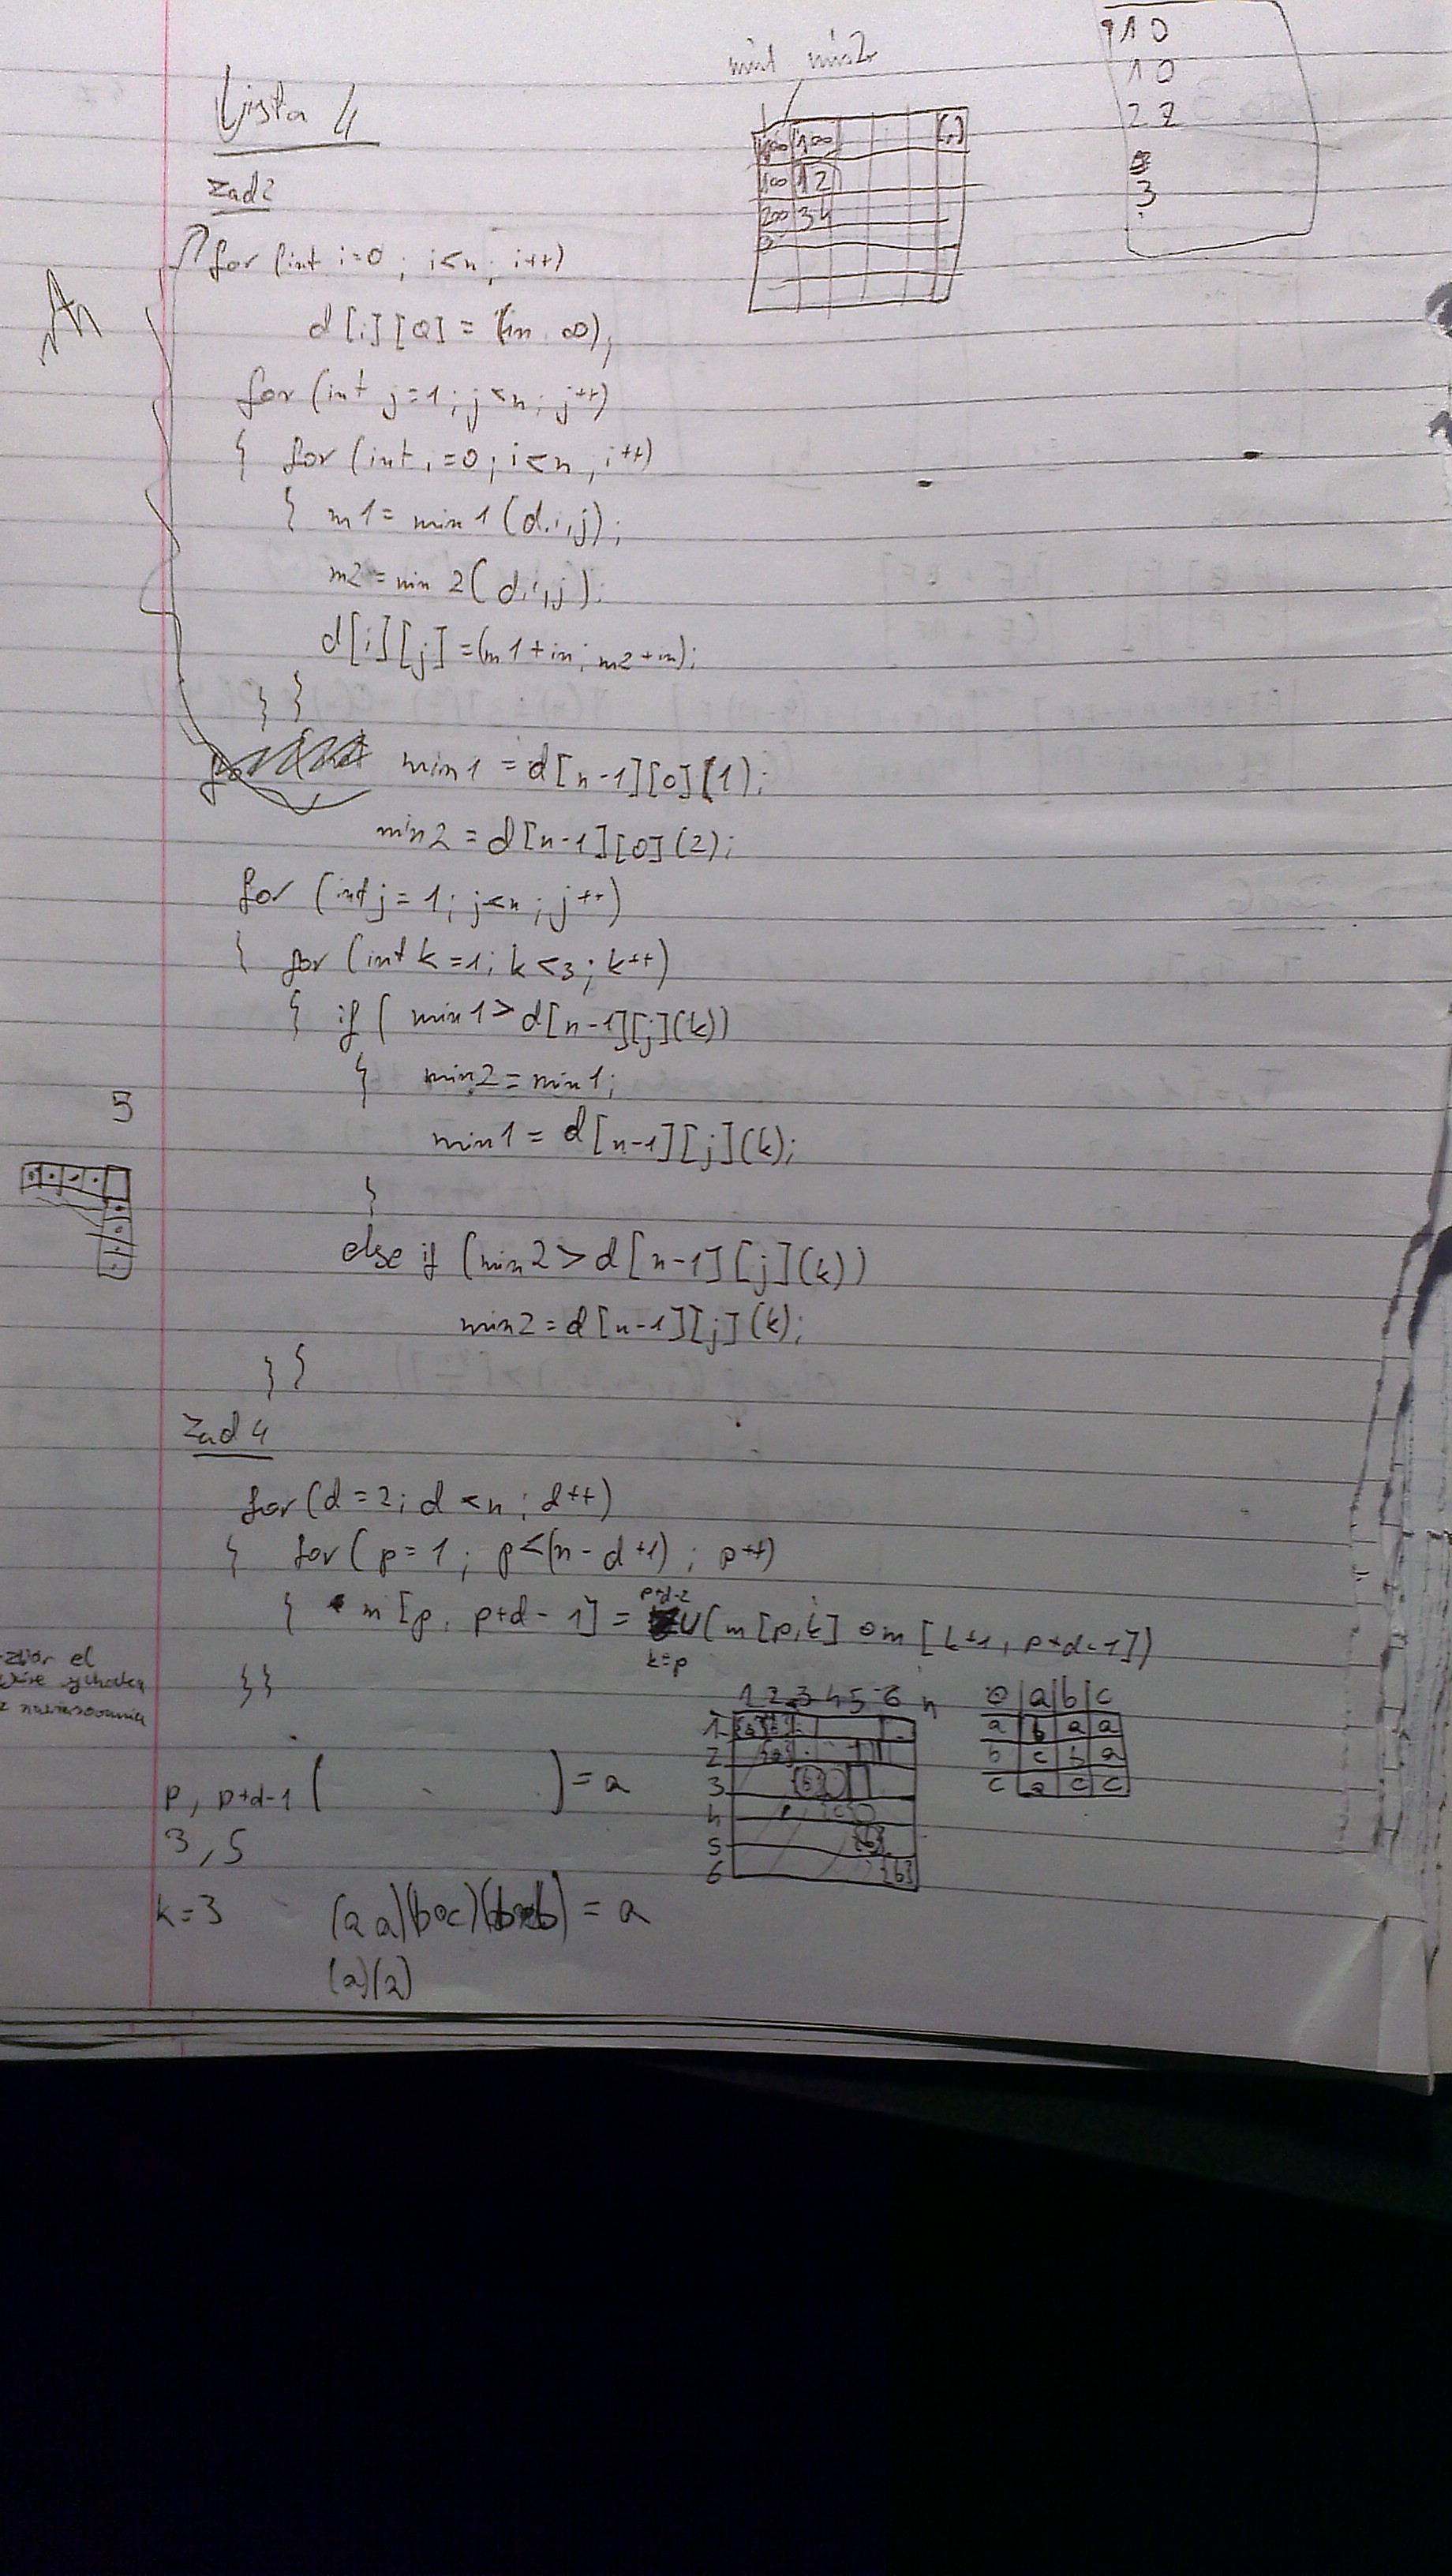 Lista 4
zad2
min1 min2
10
10
22
3
for (int i=0; i<n; i++)
d[i][0] = (in, ∞);
for (int j=1; j<n; j++)
{ for (int i=0; i<n, i++)
{ m1 = min1(d,i,j);
m2 = min2(d,i,j);
d[i][j] = (m1+in; m2+in);
} }
min1 = d[n-1][0](1);
min2 = d[n-1][0](2);
for (int j=1; j<n; j++)
{ for (int k=1; k<3; k++)
{ if (min1 > d[n-1][j](k))
{ min2 = min1;
min1 = d[n-1][j](k);
}
else if (min2 > d[n-1][j](k))
min2 = d[n-1][j](k);
} }
5
zad 4
for (d=2; d<n; d++)
{ for (p=1; p<(n-d+1); p++)
p+d-2
{ m[p, p+d-1] = U(m[p,k] ∘ m[k+1, p+d-1])
k=p
}}
1 2 3 4 5 6 n
1
2
3
4
5
6
∘ a b c
a b a a
b c b a
c a c c
p, p+d-1 ( ) = a
3, 5
k=3 (a a)(b∘c)(b b) = a
(a)(a)